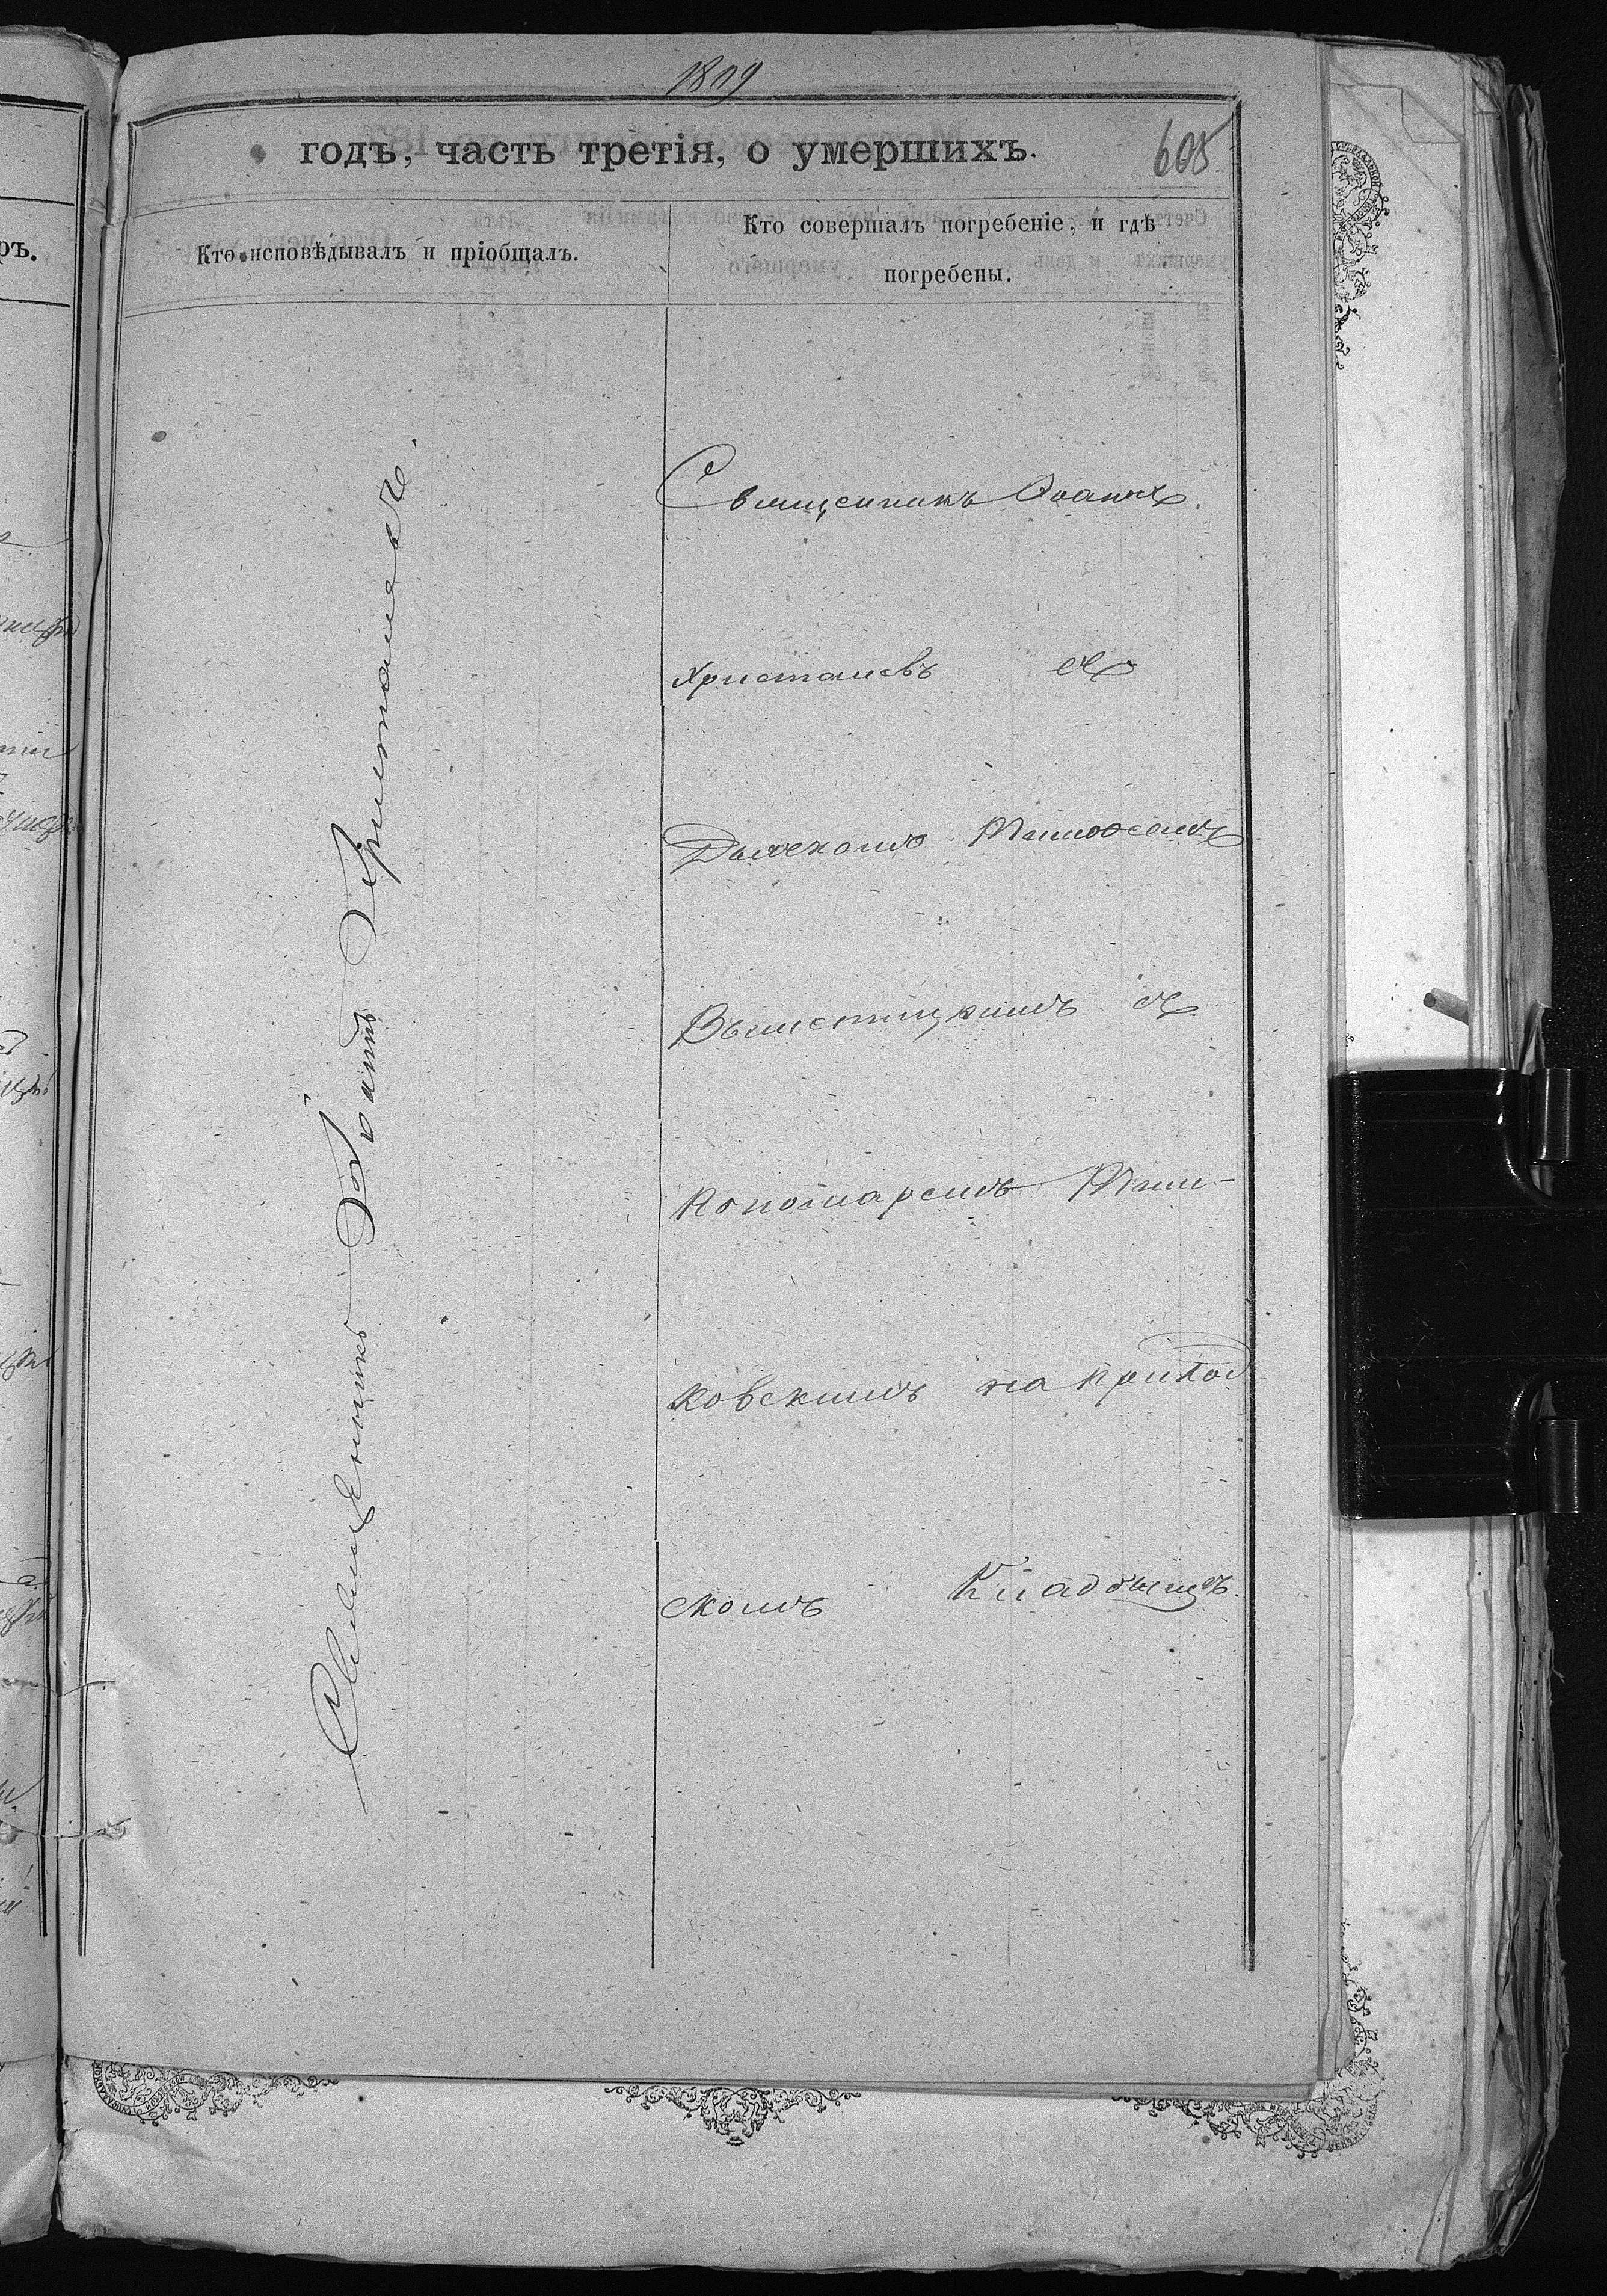 1879
годъ, часть третія, о умершихъ.
605
Кто исповѣдывалъ и пріобщалъ.
Кто совершалъ погребеніе, и гдѣ
погребены.
Священникъ Іоаннъ Христалевъ
Священникъ Іоаннъ
Христалевъ съ
Дьячкомъ Тимофеемъ
съ
Пономаремъ
ковскимъ на приход
скомъ Кладбищѣ.
ръ.